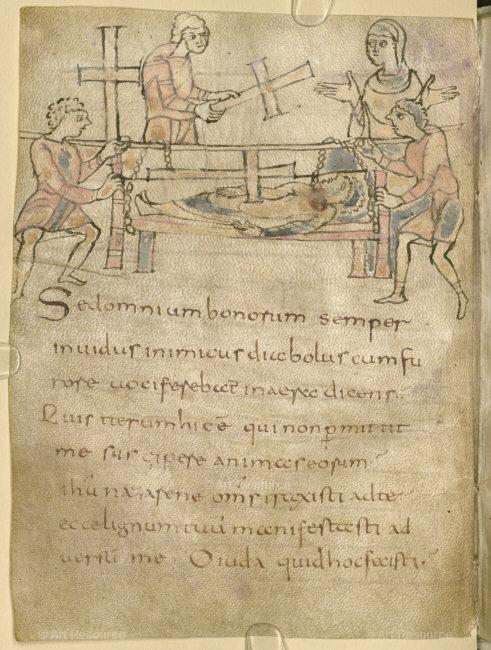 Sed omnium bonorum semper
inuidus inimicus diabolus cum fu
rore uociferabat in aera dicens.
Quis iterum hic ē qui non pmittit
me suscipere animas eorum?
ihū nazarene om̄s traxisti ad te
ecce lignum tuū manifestasti ad
uersū me. O iuda quid hoc fecisti?
© Art Resource